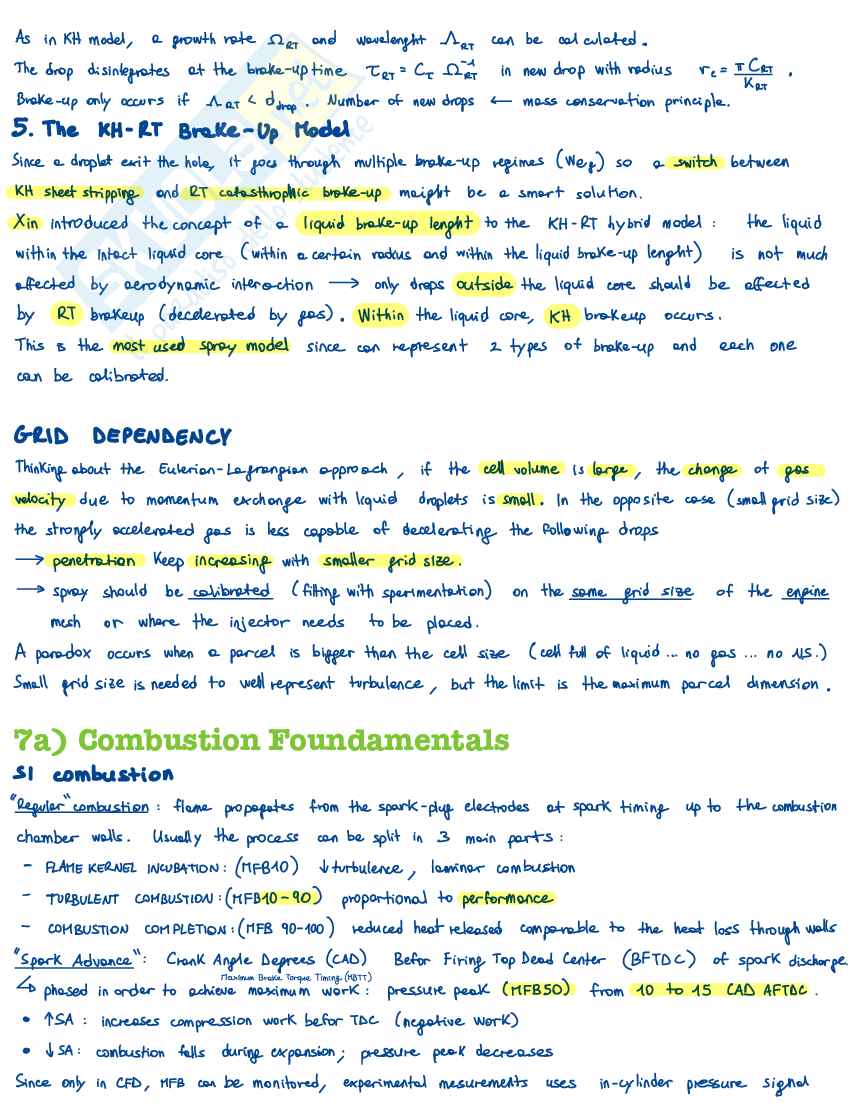 As in KH model, a growth rate Ω_RT and wavelenght Λ_RT can be calculated.
The drop disintegrates at the brake-up time τ_RT = C_τ Ω_RT^-1 in new drop with radius r_c = π C_RT / K_RT .
Brake-up only occurs if Λ_RT < d_drop . Number of new drops ← mass conservation principle.
5. The KH-RT Brake-Up Model
Since a droplet exit the hole, it goes through multiple brake-up regimes (We_g) so a switch between
KH sheet stripping and RT catasthrophic brake-up maight be a smart solution.
Xin introduced the concept of a liquid brake-up lenght to the KH-RT hybrid model : the liquid
within the intact liquid core (within a certain radius and within the liquid brake-up lenght) is not much
affected by aerodynamic interaction → only drops outside the liquid core should be affected
by RT brakeup (decelerated by gas). Within the liquid core, KH brakeup occurs.
This is the most used spray model since can represent 2 types of brake-up and each one
can be calibrated.
GRID DEPENDENCY
Thinking about the Eulerian-Lagrangian approach, if the cell volume is large, the change of gas
velocity due to momentum exchange with liquid droplets is small. In the opposite case (small grid size)
the strongly accelerated gas is less capable of decelerating the following drops
→ penetration keep increasing with smaller grid size.
→ spray should be calibrated (fitting with sperimentation) on the same grid size of the engine
mesh or where the injector needs to be placed.
A paradox occurs when a parcel is bigger than the cell size (cell full of liquid ... no gas ... no N.S.)
Small grid size is needed to well represent turbulence, but the limit is the maximum parcel dimension.
7a) Combustion Foundamentals
SI combustion
"Regular" combustion : flame propagates from the spark-plug electrodes at spark timing up to the combustion
chamber walls. Usually the process can be split in 3 main parts :
- FLAME KERNEL INCUBATION : (MFB10) ↓turbulence, laminar combustion
- TURBULENT COMBUSTION : (MFB10-90) proportional to performance
- COMBUSTION COMPLETION : (MFB 90-100) reduced heat released comparable to the heat loss through walls
"Spark Advance" : Crank Angle Degrees (CAD) Befor Firing Top Dead Center (BFTDC) of spark discharge
Maximum Brake Torque Timing (MBTT)
↳ phased in order to achieve maximum work : pressure peak (MFB50) from 10 to 15 CAD AFTDC.
• ↑SA : increases compression work befor TDC (negative work)
• ↓SA : combustion falls during expansion; pressure peak decreases
Since only in CFD, MFB can be monitored, experimental mesurements uses in-cylinder pressure signal